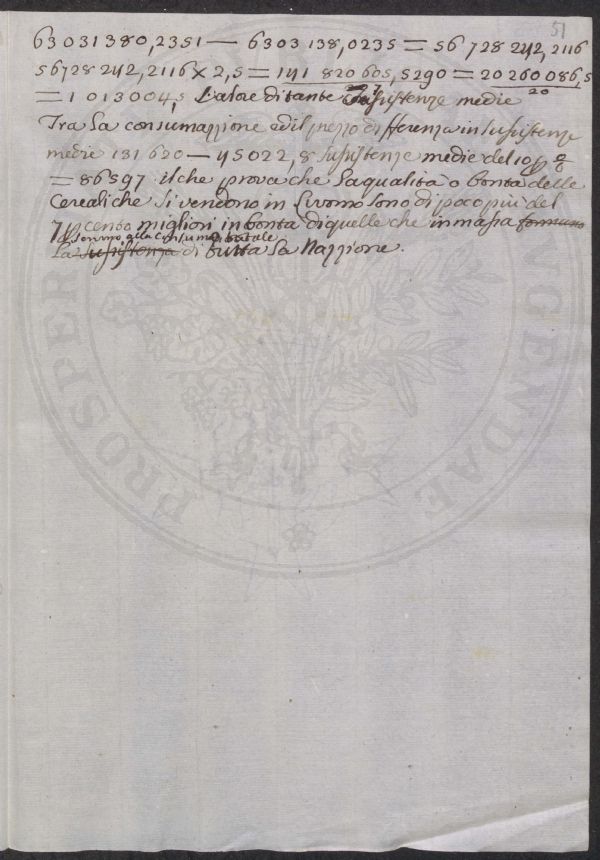 51
63 031 380,2351 — 6303 138,0235 = 56 728 242, 2116
56728 242, 2116 x 2,5 = 141 820 605, 5290 = 20 260 086,5
20
= 1 013 004,5 Valore di tante Susistenze medie
Tra La consumazzione ed il prezzo differenza in susistenze
medie 131 620 — 45022, 8 susistenze medie del 10 p %
= 86597 il che prova che La qualità o bontà delle
Cereali che si vendono in Livorno sono di poco più del
7 p cento migliori in bontà di quelle che in massa formano
servono alla Consumaz totale
La susistenza di tutta La Nazzione.
PROSPERO GENDAE